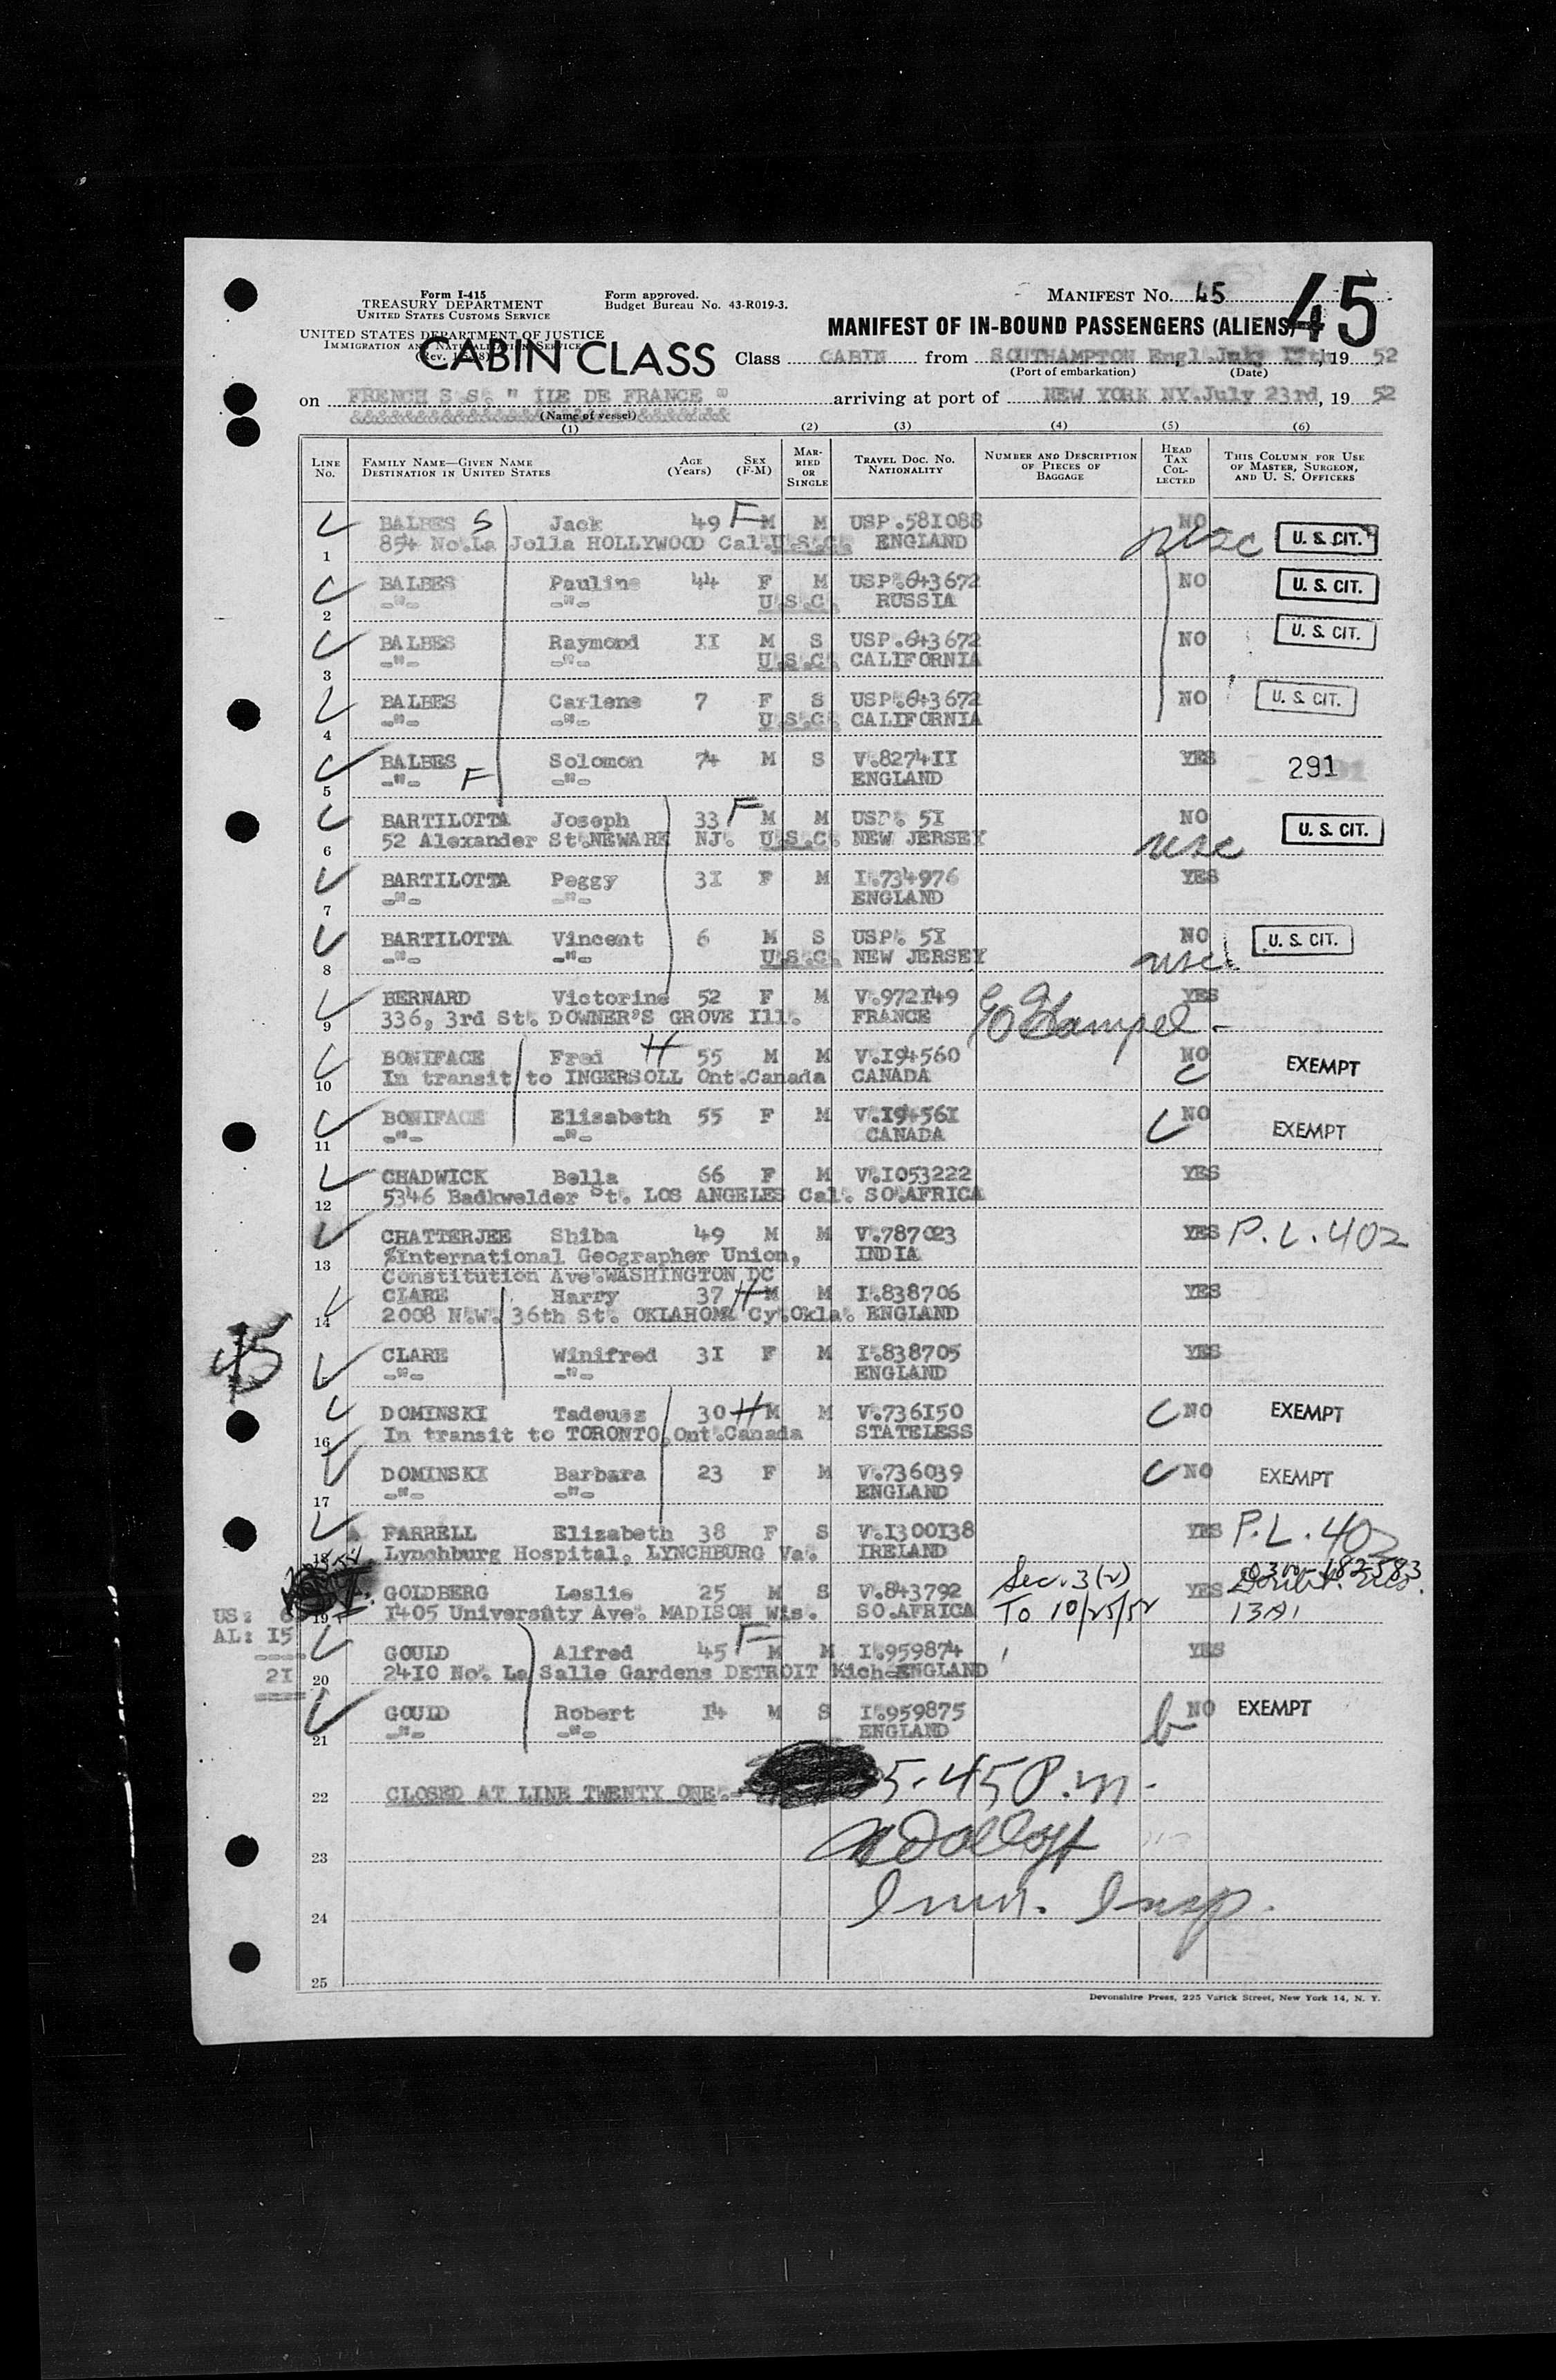 Form I-415
TREASURY DEPARTMENT
UNITED STATES CUSTOMS SERVICE
Form approved.
Budget Bureau No. 43-R019-3.
MANIFEST NO. 45
45
UNITED STATES DEPARTMENT OF JUSTICE
IMMIGRATION AND NATURALIZATION SERVICE
MANIFEST OF IN-BOUND PASSENGERS (ALIENS)
CABIN CLASS
Class CABIN from SOUTHAMPTON Engl. July 17th, 19 52
(Port of embarkation) (Date)
on FRENCH S.S. " ILE DE FRANCE " arriving at port of NEW YORK NY. July 23rd, 19 52
(Name of vessel)
(1) (2) (3) (4) (5) (6)
LINE No. FAMILY NAME—GIVEN NAME DESTINATION IN UNITED STATES AGE (Years) SEX (F-M) MARRIED OR SINGLE TRAVEL DOC. NO. NATIONALITY NUMBER AND DESCRIPTION OF PIECES OF BAGGAGE HEAD TAX COLLECTED THIS COLUMN FOR USE OF MASTER, SURGEON, AND U. S. OFFICERS
BALBES S Jack 49 F M M USP.581088 NO
1 854 No.La Jolla HOLLYWOOD Cal. U.S.C. ENGLAND usc U. S. CIT.
BALBES Pauline 44 F M USP.643672 NO U. S. CIT.
2 -"- -"- U.S.C. RUSSIA
BALBES Raymond II M S USP.643672 NO U. S. CIT.
3 -"- -"- U.S.C. CALIFORNIA
BALBES Carlene 7 F S USP.643672 NO U. S. CIT.
4 -"- -"- U.S.C. CALIFORNIA
BALBES Solomon 74 M S V.8274II YES 291
5 -"- F -"- ENGLAND
BARTILOTTA Joseph 33 F M M USP. 5I NO
6 52 Alexander St.NEWARK NJ. U.S.C. NEW JERSEY usc U. S. CIT.
BARTILOTTA Peggy 3I F M I.734976 YES
7 -"- -"- ENGLAND
BARTILOTTA Vincent 6 M S USP. 5I NO U. S. CIT.
8 -"- -"- U.S.C. NEW JERSEY usc
BERNARD Victorine 52 F M V.972I49 YES
9 336, 3rd St. DOWNER'S GROVE Ill. FRANCE
BONIFACE Fred H 55 M M V.I94560 NO EXEMPT
10 In transit to INGERSOLL Ont.Canada CANADA C
BONIFACE Elisabeth 55 F M V.I9456I C NO EXEMPT
11 -"- -"- CANADA
CHADWICK Bella 66 F M V.I053222 YES
12 5346 Badkwelder St. LOS ANGELES Cal. SO.AFRICA
CHATTERJEE Shiba 49 M M V.787023 YES P.L. 402
13 %International Geographer Union, INDIA
Constitution Ave.WASHINGTON DC
CLARE Harry 37 H M M I.838706 YES
14 2008 N.W. 36th St. OKLAHOMA Cy.Okla. ENGLAND
45
CLARE Winifred 3I F M I.838705 YES
-"- -"- ENGLAND
DOMINSKI Tadeusz 30 H M M V.736I50 C NO EXEMPT
16 In transit to TORONTO,Ont.Canada STATELESS
DOMINSKI Barbara 23 F M V.736039 C NO EXEMPT
17 -"- -"- ENGLAND
FARRELL Elizabeth 38 F S V.I300I38 YES P.L. 402
18 Lynchburg Hospital, LYNCHBURG Va. IRELAND
GOLDBERG Leslie 25 M S V.843792 Sec. 3(2) YES
19 I405 University Ave. MADISON Wis. SO.AFRICA To 10/25/52
US: 6
AL: I5
2I
GOULD Alfred 45 F M M I.959874 YES
20 24I0 No. La Salle Gardens DETROIT Mich ENGLAND
GOULD Robert I4 M S I.959875 NO EXEMPT
21 -"- -"- ENGLAND
22 CLOSED AT LINE TWENTY ONE.- 5.45 P.m.
23
Imm. Insp.
24
25
Devonshire Press, 225 Varick Street, New York 14, N. Y.